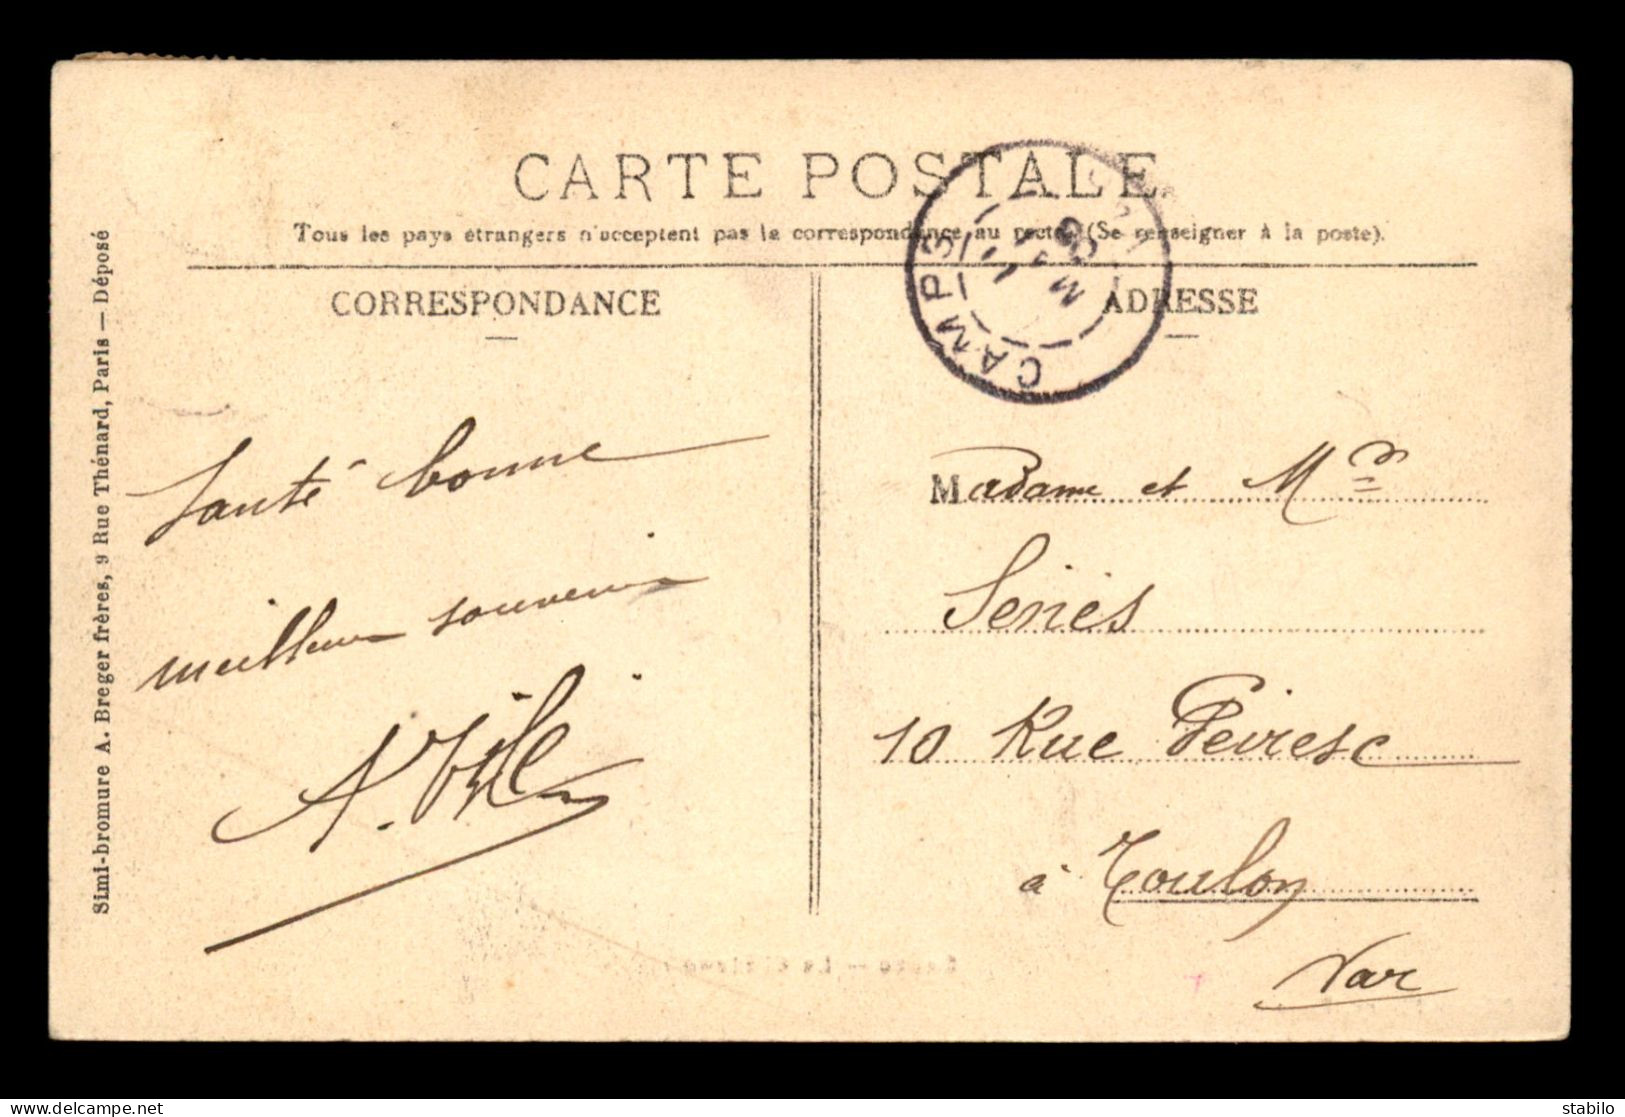 CARTE POSTALE
Tous les pays étrangers n'acceptent pas la correspondance au recto (Se renseigner à la poste).
CORRESPONDANCE
ADRESSE
CAMPS
Simi-bromure A. Breger frères, 9 Rue Thénard, Paris — Déposé
Santé bonne
meilleurs souvenirs
Madame et Mr
Séniès
10 Rue Peiresc
à Toulon
Var
delcampe.net
stabilo